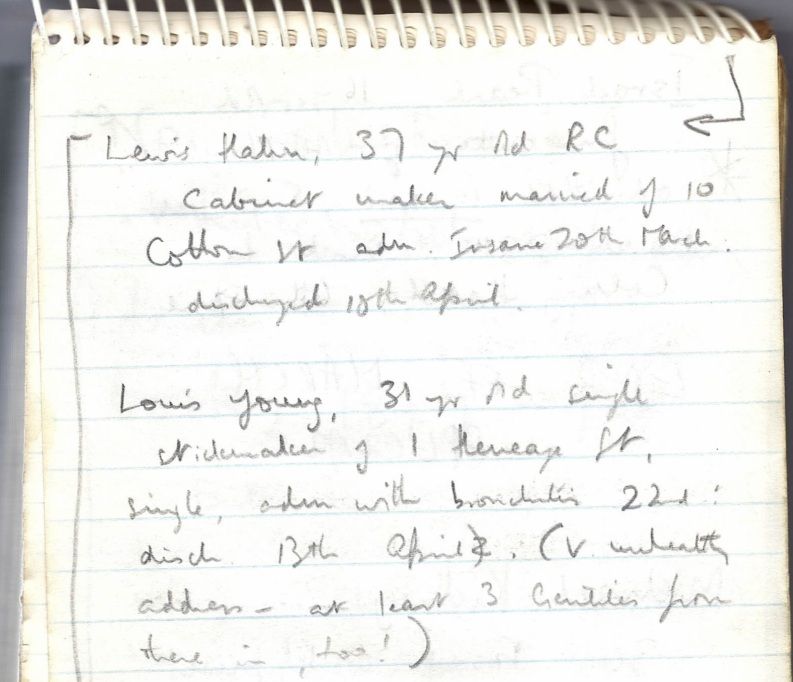 Lewis Hahn, 37 yr old RC
Cabinet maker married of 10
Cotton St adm. Insane 20th March.
discharged 18th April.
Louis Young, 31 yr old single
stickmaker of 1 Heneage St,
single, adm with bronchitis 22nd:
disch 13th April. (V. unhealthy
address - at least 3 Gentiles from
there in, too!)